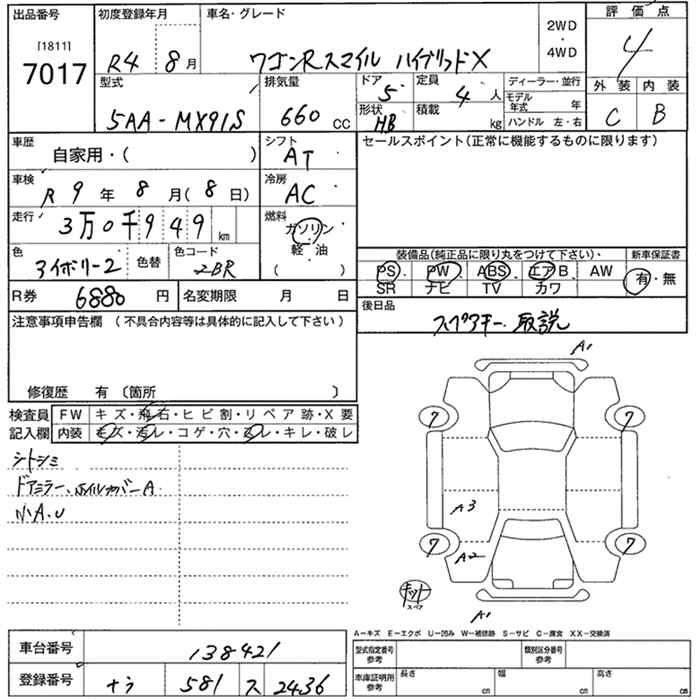 出品番号
[1811]
7017
初度登録年月
R4 8月
車名・グレード
ワゴンRスマイル ハイブリッドX
2WD
・
4WD
評価点
4
外装 内装
C B
型式
5AA-MX91S
排気量
660 cc
ドア
5
定員
4 人
形状
HB
積載
kg
ディーラー・並行
モデル年式 年
ハンドル 左・右
車歴
自家用・( )
シフト
AT
セールスポイント(正常に機能するものに限ります)
車検
R 9 年 8 月(8 日)
冷房
AC
走行
3万0千949 km
燃料
ガソリン
軽・油
( )
色
3イボリー2
色替
色コード
2BR
装備品(純正品に限り丸をつけて下さい)・
PS PW ABS エアB AW
SR ナビ TV カワ
新車保証書
有・無
R券 6880 円
名変期限 月 日
後日品
スペアキー 取説
注意事項申告欄 (不具合内容等は具体的に記入して下さい)
修復歴 有 〔箇所 〕
検査員記入欄
FW キズ・飛石・ヒビ割・リペア跡・X要
内装 キズ・汚レ・コゲ・穴・スレ・キレ・破レ
シトシミ
ドアミラー、ホイルカバーA
小A.U
A1
7 7
A3
7 7
A2
キット
スペア
A1
A-キズ E-エクボ U-凹み W-補修跡 S-サビ C-腐食 XX-交換済
車台番号 138421
型式指定番号 参考
類別区分番号 参考
登録番号 ナラ 581 ス 2436
車庫証明用 参考
長さ cm
幅 cm
高さ cm